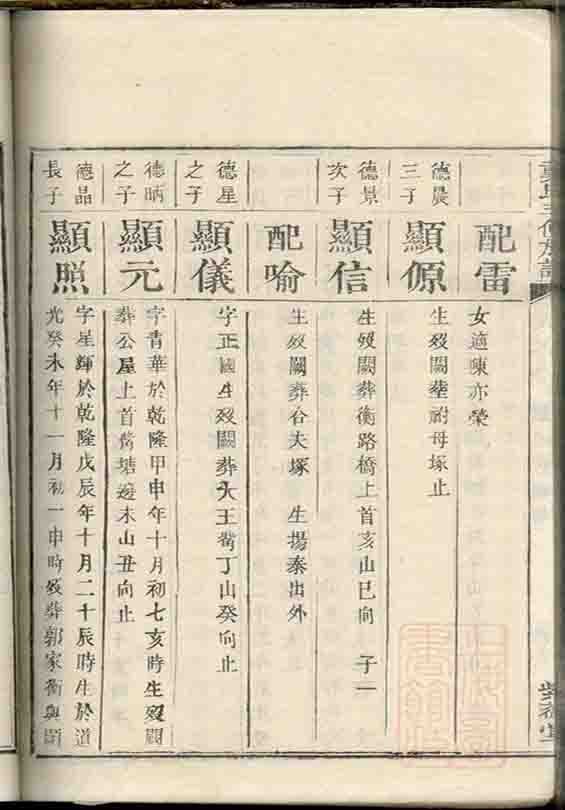 配雷
女適陳亦榮
德晨
三子
顯傆
生歿闕塟祔母塚止
德景
次子
顯信
生歿闕葬衡路橋上首亥山巳向 子一
配喻
生歿闕葬合夫塚 生揚泰出外
德星
之子
顯儀
字正國生歿闕葬大王嘴丁山癸向止
德昞
之子
顯元
字青華於乾隆甲申年十月初七亥時生歿闕
葬公屋上首嘴塘邊未山丑向止
德晶
長子
顯照
字星輝於乾隆戊辰年十月二十辰時生於道
光癸未年十一月初一申時歿葬郭家衝與